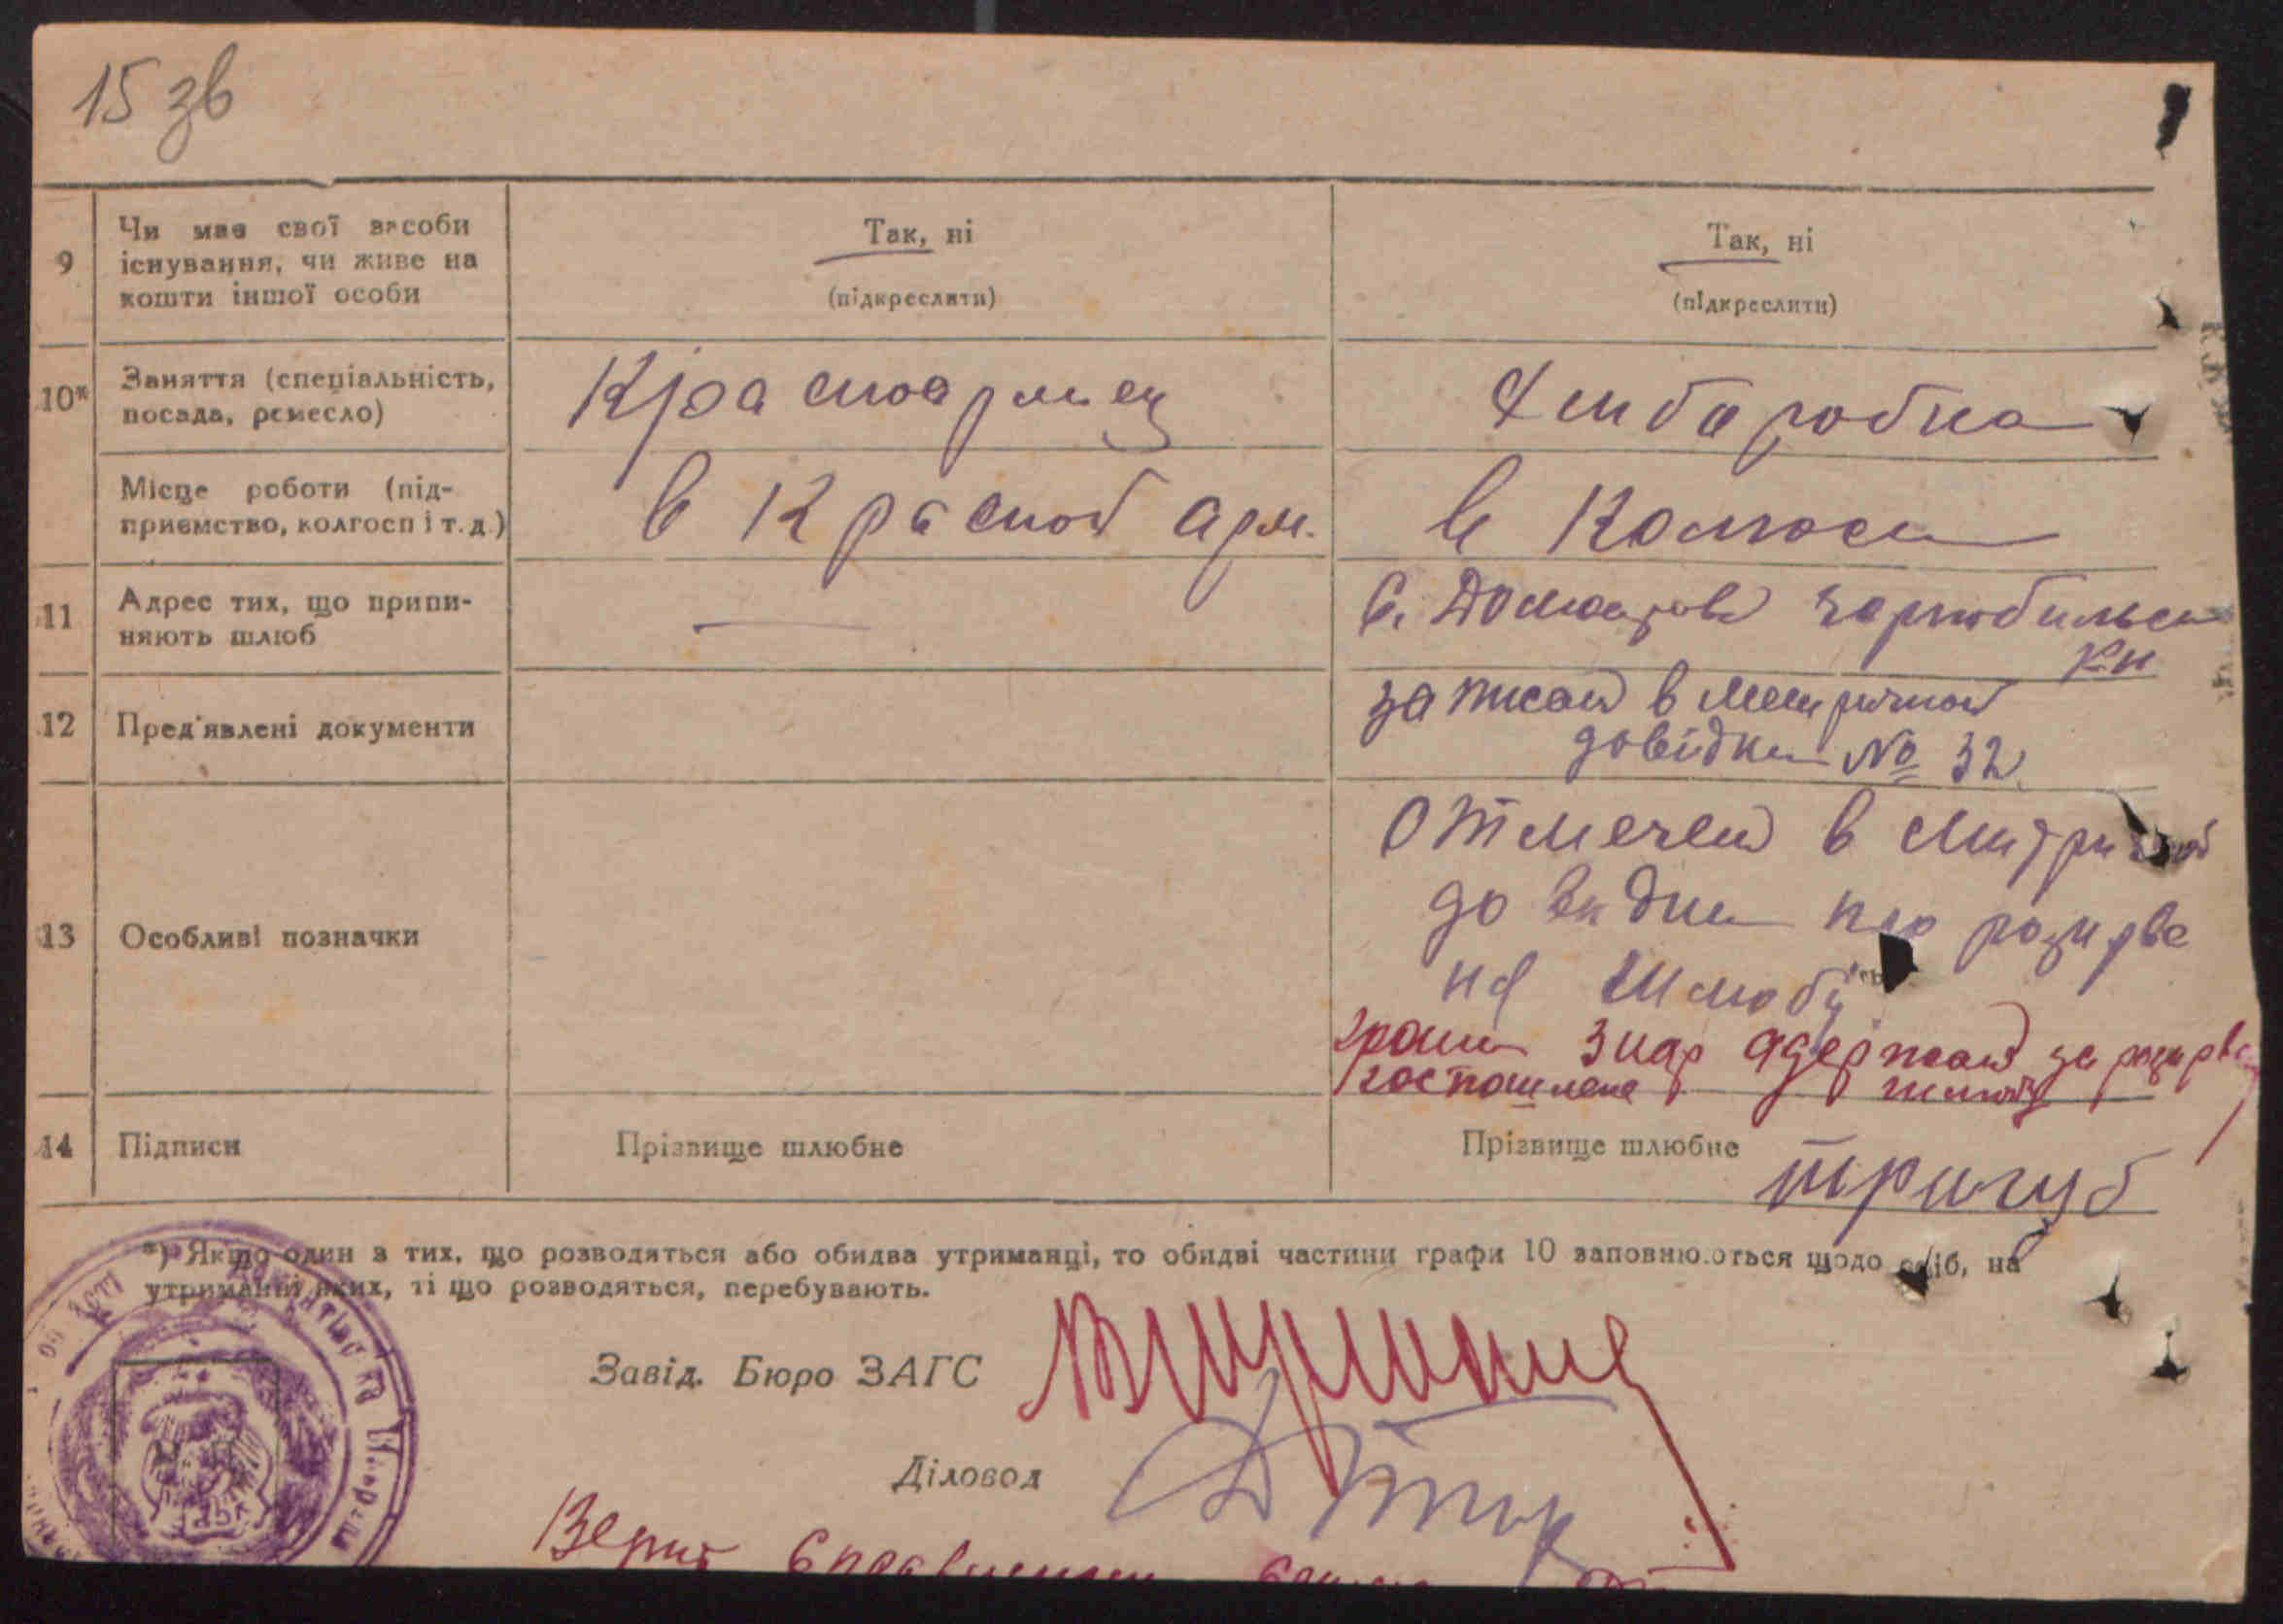 15 зв
9
Чи має свої засоби
існування, чи живе на
кошти іншої особи
Так, ні
(підкреслити)
Так, ні
(підкреслити)
10*
Заняття (спеціальність,
посада, ремесло)
Красноармец
Хлиборобка
Місце роботи (під-
приємство, колгосп і т. д.)
в Красной арм.
в Колгосп
11
Адрес тих, що припи-
няють шлюб
—
С. Чорнобильск
12
Пред'явлені документи
записан в метричной
довідки № 32
13
Особливі позначки
Отмечен в
довидки про разирва
ня Шлюбу
гроши за
14
Підписи
Прізвище шлюбне
Прізвище шлюбне
тригуб
*) Якщо один з тих, що розводяться або обидва утриманці, то обидві частини графи 10 заповнюються щодо осіб, на
утриманні яких, ті що розводяться, перебувають.
Завід. Бюро ЗАГС
Діловод